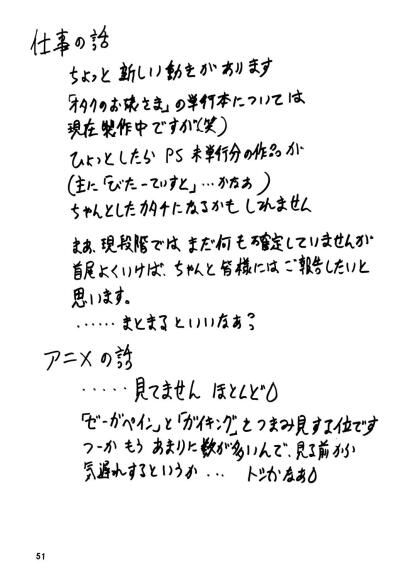 仕事の話
ちょっと新しい動きがあります
「オタクのお嬢さま」の単行本については
現在製作中ですが(笑)
ひょっとしたら PS 未単行分の作品が
(主に「びたーてぃすと」…かなぁ)
ちゃんとしたカタチになるかも しれません
まぁ、現段階では まだ何も確定していませんが
首尾よくいけば、ちゃんと皆様にはご報告したいと
思います。
……まとまるといいなぁ?
アニメの話
・・・・・見てません ほとんど
「ゼーガペイン」と「ガイキング」をつまみ見する位です
つーか もう あまりに数が多いんで、見る前から
気遅れするというか… トシかなぁ
51